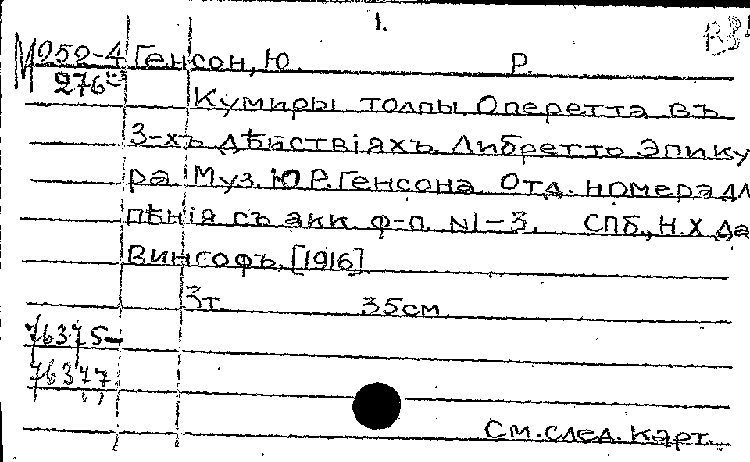 1.
М 050-4 Генсон, Ю. Р.
276
Кумиры толпы. Оперетта въ
3-хъ дѣйствiяхъ. Либретто Эпику
ра. Муз. Ю.Р. Генсона. Отд. номера дл
пѣнiя съ акк. ф-п. N1-3. СПб., Н.Х. Да
вингофъ, [1916]
3т. 35см.
76375-
76377
См. след. карт.